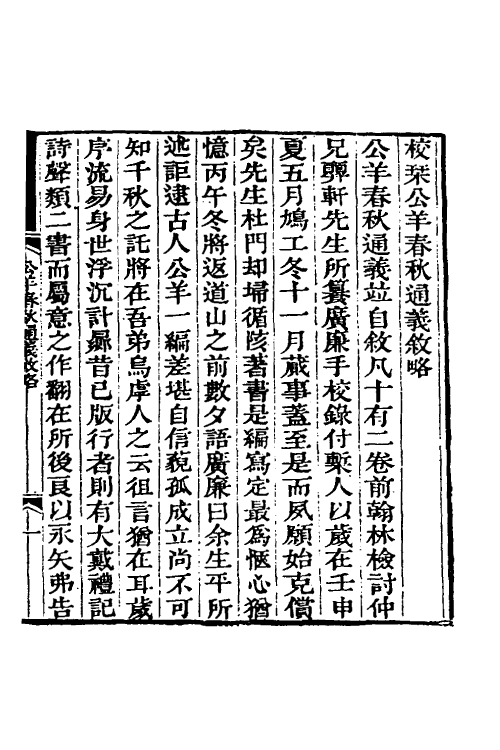 校栞公羊春秋通義敘略
公羊春秋通義竝自敘凡十有二卷前翰林檢討仲
兄顨軒先生所纂廣廉手校錄付槧人以歲在壬申
夏五月鳩工冬十一月蕆事蓋至是而夙願始克償
矣先生杜門却埽循陔著書是編寫定最爲愜心猶
憶丙午冬將返道山之前數夕語廣廉曰余生平所
述詎逮古人公羊一編差堪自信藐孤成立尚不可
知千秋之託將在吾弟烏虖人之云徂言猶在耳歲
序流易身世浮沉計曩昔已版行者則有大戴禮記
詩聲類二書而屬意之作翻在所後良以永矢弗告
公羊春秋通義敘略
一